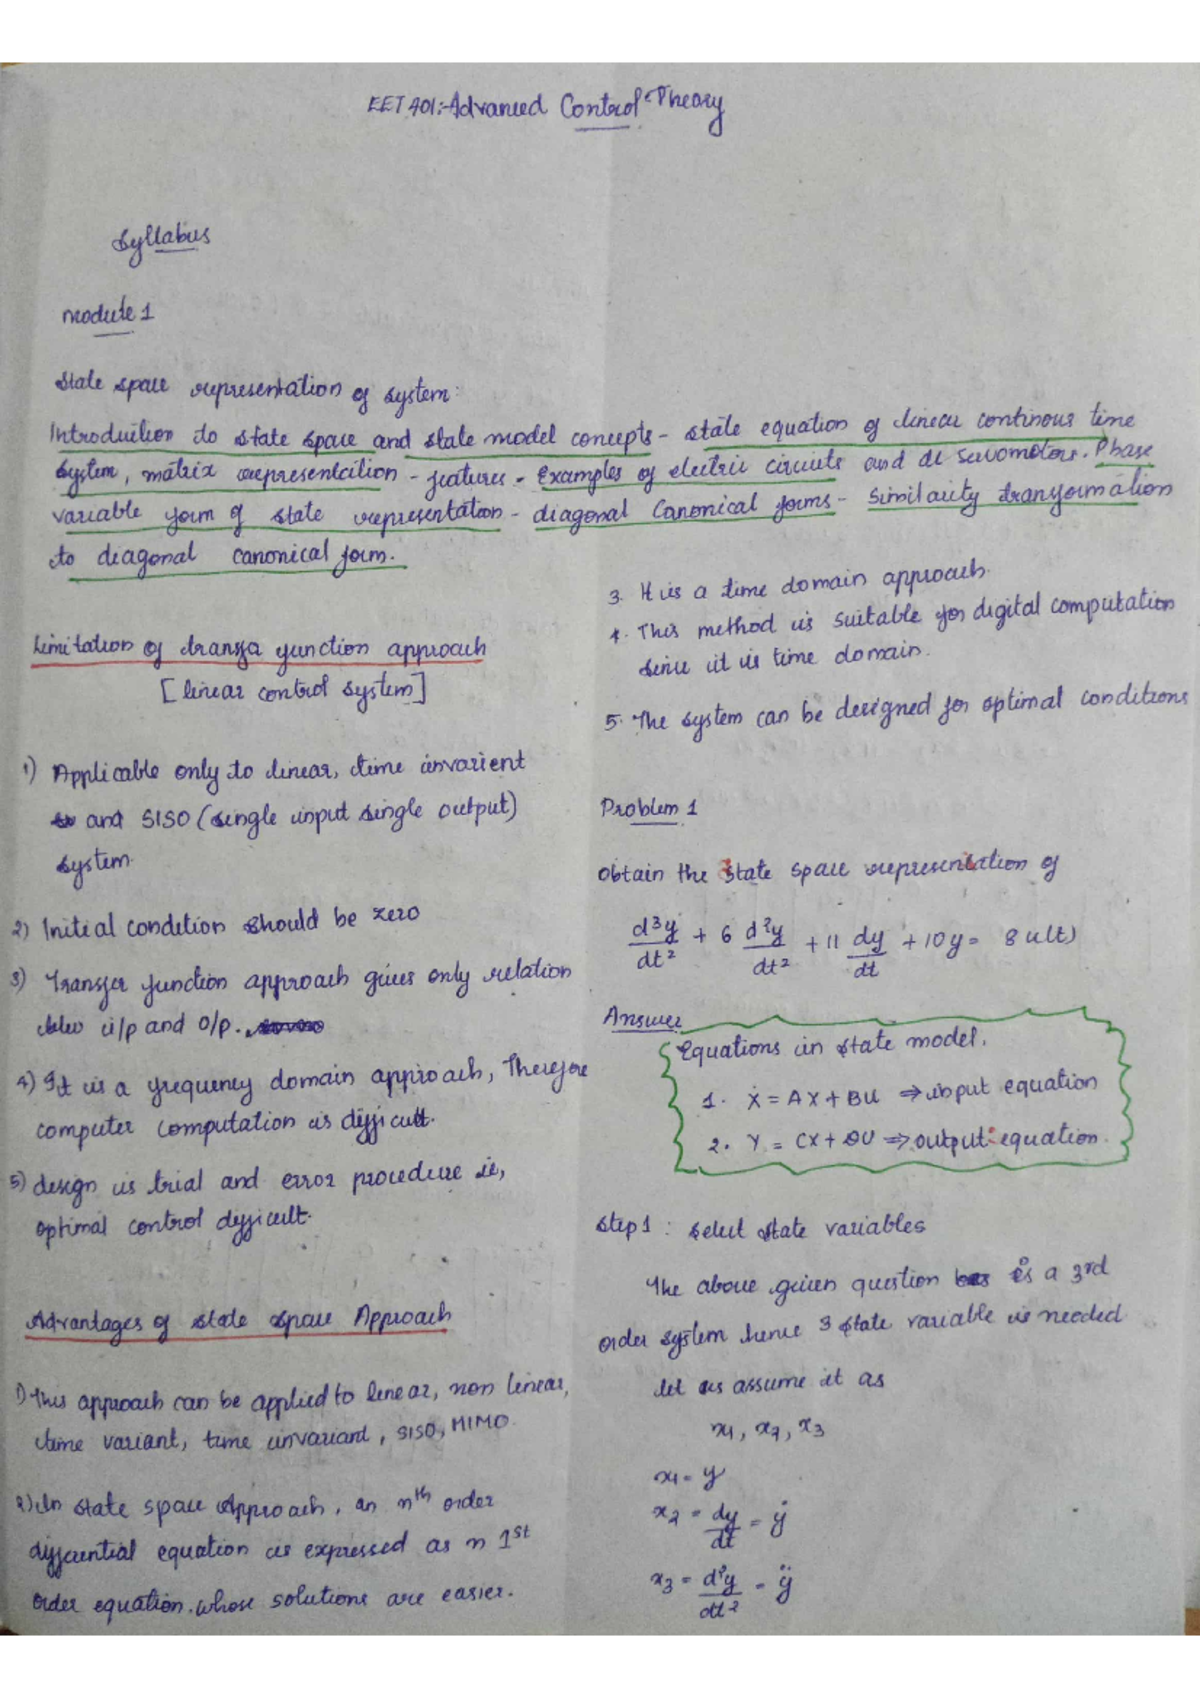 EET401:-Advanced Control Theory
Syllabus
Module 1
State space representation of system:
Introduction to state space and state model concepts - state equation of linear continous time
system, matrix representation - features - Examples of electric circuits and dc servomotors. Phase
variable form of state representation - diagonal Canonical forms - Similarity transformation
to diagonal canonical form.
Limitation of transfer function approach
[linear control system]
1) Applicable only to linear, time invarient
and SISO (single input single output)
system.
2) Initial condition should be zero
3) Transfer function approach gives only relation
b/w i/p and o/p.
4) It is a frequency domain approach, Therefore
computer computation is difficult.
5) design is trial and error procedure ie,
optimal control difficult.
Advantages of state space Approach
1) This approach can be applied to linear, non linear,
time variant, time invariant, SISO, MIMO.
2) In state space Approach, an nth order
differential equation is expressed as n 1st
order equation. whose solutions are easier.
3. It is a time domain approach.
4. This method is suitable for digital computation
since it is time domain.
5. The system can be designed for optimal conditions
Problem 1
obtain the state space representation of
d³y/dt² + 6 d²y/dt² + 11 dy/dt + 10y = 8 u(t)
Answer
Equations in state model.
1. Ẋ = AX + BU ⇒ input equation
2. Y = CX + DU ⇒ output equation.
Step 1 : select state variables
The above given question is a 3rd
order system hence 3 state variable is needed
let us assume it as
x1, x2, x3
x1 = y
x2 = dy/dt = ẏ
x3 = d²y/dt² = ÿ